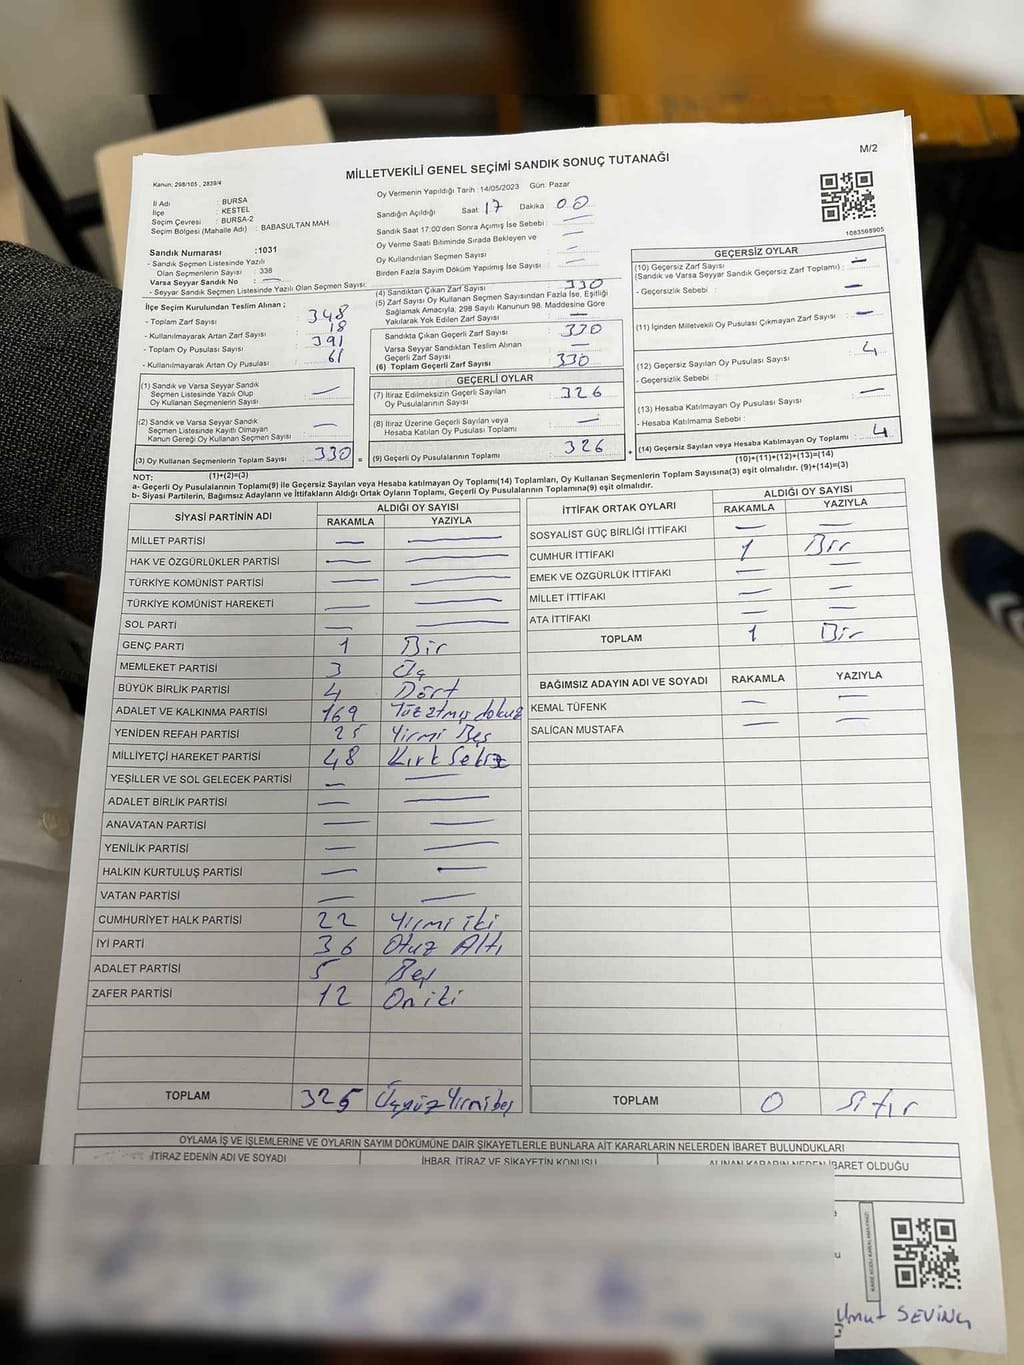 M/2
MİLLETVEKİLİ GENEL SEÇİMİ SANDIK SONUÇ TUTANAĞI
Kanun: 298/105 , 2839/4
İl Adı : BURSA
İlçe : KESTEL
Seçim Çevresi : BURSA-2
Seçim Bölgesi (Mahalle Adı) : BABASULTAN MAH.
Sandık Numarası :1031
- Sandık Seçmen Listesinde Yazılı
Olan Seçmenlerin Sayısı : 338
Varsa Seyyar Sandık No : —
- Seyyar Sandık Seçmen Listesinde Yazılı Olan Seçmen Sayısı:
İlçe Seçim Kurulundan Teslim Alınan ;
- Toplam Zarf Sayısı : 348
- Kullanılmayarak Artan Zarf Sayısı : 18
- Toplam Oy Pusulası Sayısı : 391
- Kullanılmayarak Artan Oy Pusulası : 61
(1) Sandık ve Varsa Seyyar Sandık
Seçmen Listesinde Yazılı Olup
Oy Kullanan Seçmenlerin Sayısı : —
(2) Sandık ve Varsa Seyyar Sandık
Seçmen Listesinde Kayıtlı Olmayan
Kanun Gereği Oy Kullanan Seçmen Sayısı : —
(3) Oy Kullanan Seçmenlerin Toplam Sayısı : 330
(1)+(2)=(3)
Oy Vermenin Yapıldığı Tarih : 14/05/2023 Gün: Pazar
Sandığın Açıldığı Saat: 17 Dakika : 00
Sandık Saat 17:00'den Sonra Açımış İse Sebebi : —
Oy Verme Saati Bitiminde Sırada Bekleyen ve
Oy Kullandırılan Seçmen Sayısı : —
Birden Fazla Sayım Döküm Yapılmış İse Sayısı : —
(4) Sandıktan Çıkan Zarf Sayısı : 330
(5) Zarf Sayısı Oy Kullanan Seçmen Sayısından Fazla İse, Eşitliği
Sağlamak Amacıyla; 298 Sayılı Kanunun 98. Maddesine Göre
Yakılarak Yok Edilen Zarf Sayısı : —
Sandıkta Çıkan Geçerli Zarf Sayısı : 330
Varsa Seyyar Sandıktan Teslim Alınan
Geçerli Zarf Sayısı : —
(6) Toplam Geçerli Zarf Sayısı : 330
GEÇERLİ OYLAR
(7) İtiraz Edilmeksizin Geçerli Sayılan
Oy Pusulalarının Sayısı : 326
(8) İtiraz Üzerine Geçerli Sayılan veya
Hesaba Katılan Oy Pusulası Toplamı : —
(9) Geçerli Oy Pusulalarının Toplamı : 326
1083568905
GEÇERSİZ OYLAR
(10) Geçersiz Zarf Sayısı
(Sandık ve Varsa Seyyar Sandık Geçersiz Zarf Toplamı) : —
- Geçersizlik Sebebi : —
(11) İçinden Milletvekili Oy Pusulası Çıkmayan Zarf Sayısı : —
(12) Geçersiz Sayılan Oy Pusulası Sayısı : 4
- Geçersizlik Sebebi :
(13) Hesaba Katılmayan Oy Pusulası Sayısı : —
- Hesaba Katılmama Sebebi :
(14) Geçersiz Sayılan veya Hesaba Katılmayan Oy Toplamı : 4
(10)+(11)+(12)+(13)=(14)
NOT:
a- Geçerli Oy Pusulalarının Toplamı(9) ile Geçersiz Sayılan veya Hesaba katılmayan Oy Toplamı(14) Toplamları, Oy Kullanan Seçmenlerin Toplam Sayısına(3) eşit olmalıdır. (9)+(14)=(3)
b- Siyasi Partilerin, Bağımsız Adayların ve İttifakların Aldığı Ortak Oyların Toplamı, Geçerli Oy Pusulalarının Toplamına(9) eşit olmalıdır.
SİYASİ PARTİNİN ADI ALDIĞI OY SAYISI
RAKAMLA YAZIYLA
MİLLET PARTİSİ — —
HAK VE ÖZGÜRLÜKLER PARTİSİ — —
TÜRKİYE KOMÜNİST PARTİSİ — —
TÜRKİYE KOMÜNİST HAREKETİ — —
SOL PARTİ — —
GENÇ PARTİ 1 Bir
MEMLEKET PARTİSİ 3 Üç
BÜYÜK BİRLİK PARTİSİ 4 Dört
ADALET VE KALKINMA PARTİSİ 169 Yüzatmış dokuz
YENİDEN REFAH PARTİSİ 25 Yirmi Beş
MİLLİYETÇİ HAREKET PARTİSİ 48 Kırk Sekiz
YEŞİLLER VE SOL GELECEK PARTİSİ — —
ADALET BİRLİK PARTİSİ — —
ANAVATAN PARTİSİ — —
YENİLİK PARTİSİ — —
HALKIN KURTULUŞ PARTİSİ — —
VATAN PARTİSİ — —
CUMHURİYET HALK PARTİSİ 22 Yirmi iki
İYİ PARTİ 36 Otuz Altı
ADALET PARTİSİ 5 Beş
ZAFER PARTİSİ 12 On iki
TOPLAM 325 Üçyüz Yirmi beş
İTTİFAK ORTAK OYLARI ALDIĞI OY SAYISI
RAKAMLA YAZIYLA
SOSYALİST GÜÇ BİRLİĞİ İTTİFAKI — —
CUMHUR İTTİFAKI 1 Bir
EMEK VE ÖZGÜRLÜK İTTİFAKI — —
MİLLET İTTİFAKI — —
ATA İTTİFAKI — —
TOPLAM 1 Bir
BAĞIMSIZ ADAYIN ADI VE SOYADI RAKAMLA YAZIYLA
KEMAL TÜFENK — —
SALİCAN MUSTAFA — —
TOPLAM 0 Sıfır
OYLAMA İŞ VE İŞLEMLERİNE VE OYLARIN SAYIM DÖKÜMÜNE DAİR ŞİKAYETLERLE BUNLARA AİT KARARLARIN NELERDEN İBARET BULUNDUKLARI
İTİRAZ EDENİN ADI VE SOYADI İHBAR, İTİRAZ VE ŞİKAYETİN KONUSU ALINAN KARARIN NEDEN İBARET OLDUĞU
Umut SEVİNÇ